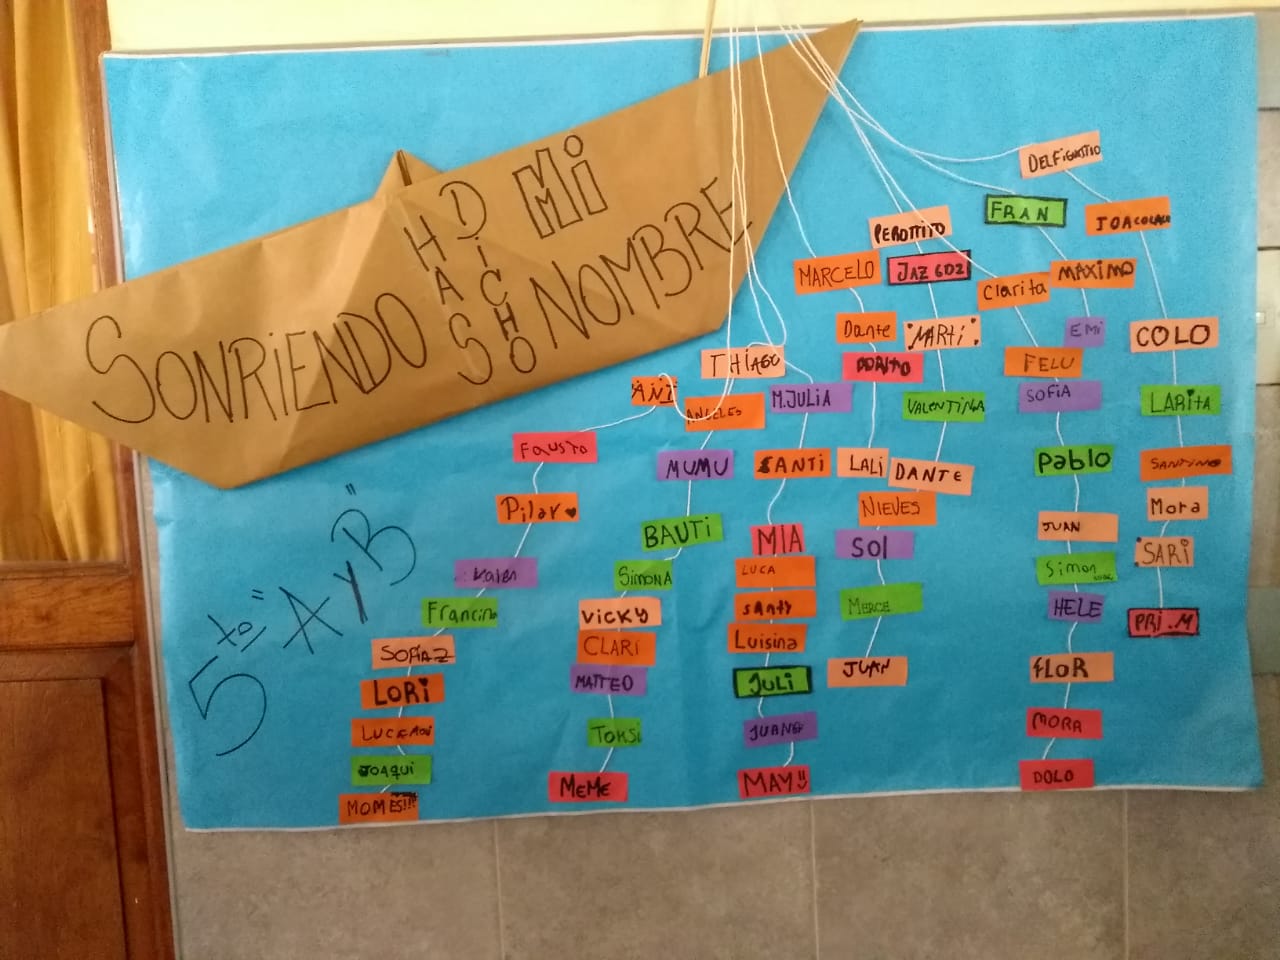 SONRIENDO
HAS
DICHO
Mi
NOMBRE
5to "A y B"
DELFIGUSTIO
FRAN
JOACOLALO
PEROTTITO
MARCELO
JAZ GOZ
Clarita
MAXIMO
Dante
MARTI
EMI
COLO
THIAGO
DORITO
FELU
ANI
ANGELES
M.JULIA
VALENTINA
SOFIA
LARITA
FAUSTO
MUMU
SANTI
LALI
DANTE
Pablo
SANTINO
Pilar
NIEVES
Mora
BAUTI
MIA
SOl
JUAN
SARI
Valen
SIMONA
LUCA
Simon
Francina
VICKY
SANTY
MERCE
HELE
PRI.M
SOFIAZ
CLARI
Luisina
JUAN
FLOR
LORI
MATTEO
JULI
LUCEMOI
TOKSI
JUANSE
MORA
JOAQUI
MEME
MAY
DOLO
MOMES!!!